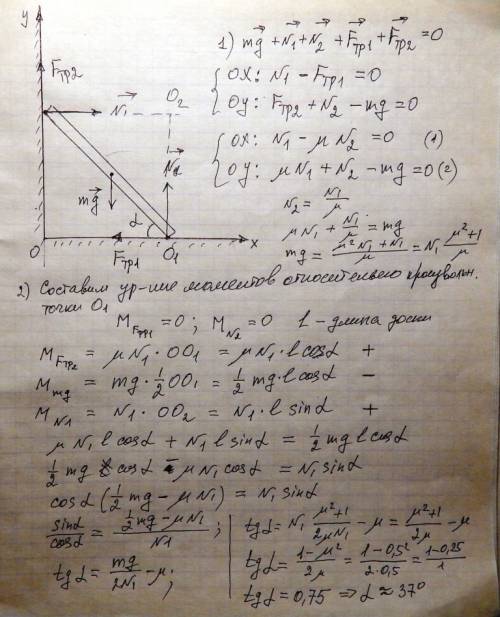 y
1) mg⃗ + N⃗1 + N⃗2 + F⃗тр1 + F⃗тр2 = 0
F⃗тр2
N⃗1
O2
{ OX: N1 - Fтр1 = 0
{ OY: Fтр2 + N2 - mg = 0
{ OX: N1 - μN2 = 0 (1)
{ OY: μN1 + N2 - mg = 0 (2)
N⃗2
mg⃗
α
N2 = N1/μ
O
F⃗тр1
O1
x
μN1 + N1/μ = mg
mg = (μ²N1 + N1)/μ = N1 (μ²+1)/μ
2) Составим ур-ние моментов относительно произвольн.
точки O1
MFтр1 = 0; MN2 = 0 l - длина доски
MFтр2 = μN1·OO1 = μN1·l cosα +
Mmg = mg·½OO1 = ½mg·l cosα -
MN1 = N1·OO2 = N1·l sinα +
μN1 l cosα + N1 l sinα = ½mg l cosα
½mg cosα - μN1 cosα = N1 sinα
cosα(½mg - μN1) = N1 sinα
sinα/cosα = (½mg - μN1)/N1;
tgα = mg/2N1 - μ;
tgα = N1 (μ²+1)/2μN1 - μ = (μ²+1)/2μ - μ
tgα = (1-μ²)/2μ = (1-0,5²)/2·0,5 = (1-0,25)/1
tgα = 0,75 ⇒ α ≈ 37°